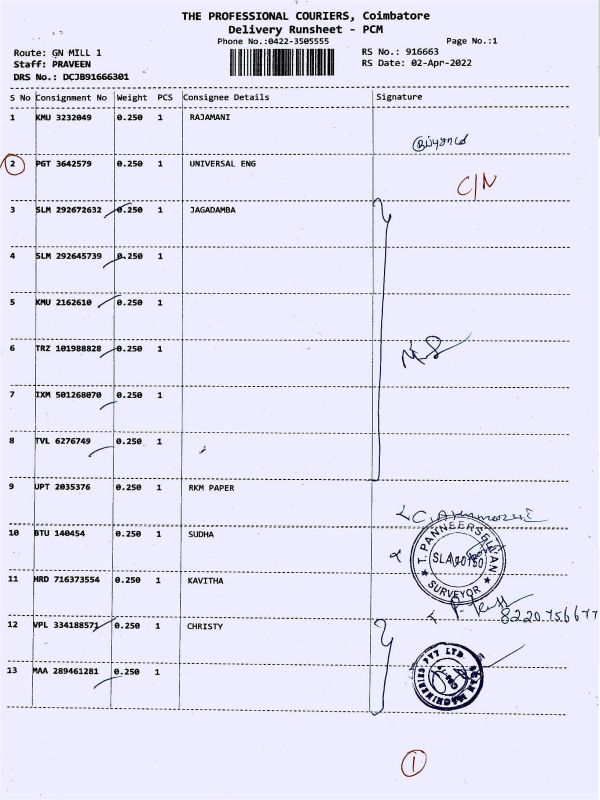 THE PROFESSIONAL COURIERS, Coimbatore
Delivery Runsheet - PCM
Phone No.:0422-3505555 Page No.:1
Route: GN MILL 1 RS No.: 916663
Staff: PRAVEEN RS Date: 02-Apr-2022
DRS No.: DCJB91666301
S No Consignment No Weight PCS Consignee Details Signature
1 KMU 3232049 0.250 1 RAJAMANI
2 PGT 3642579 0.250 1 UNIVERSAL ENG
C/N
3 SLM 292672632 0.250 1 JAGADAMBA
4 SLM 292645739 0.250 1
5 KMU 2162610 0.250 1
6 TRZ 101988828 0.250 1
7 IXM 501268070 0.250 1
8 TVL 6276749 0.250 1
9 UPT 2035376 0.250 1 RKM PAPER
10 BTU 140454 0.250 1 SUDHA
T. PANNEERSELVAN
SURVEYOR
11 HRD 716373554 0.250 1 KAVITHA
8220756677
12 VPL 334188571 0.250 1 CHRISTY
13 MAA 289461281 0.250 1
PVT LTD.
1